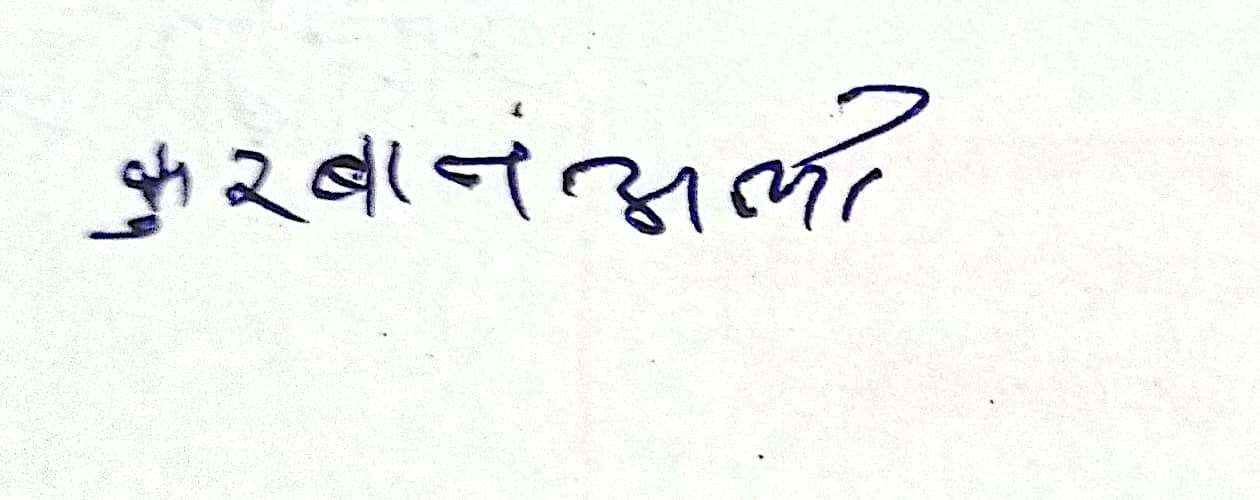 कुरबान अली